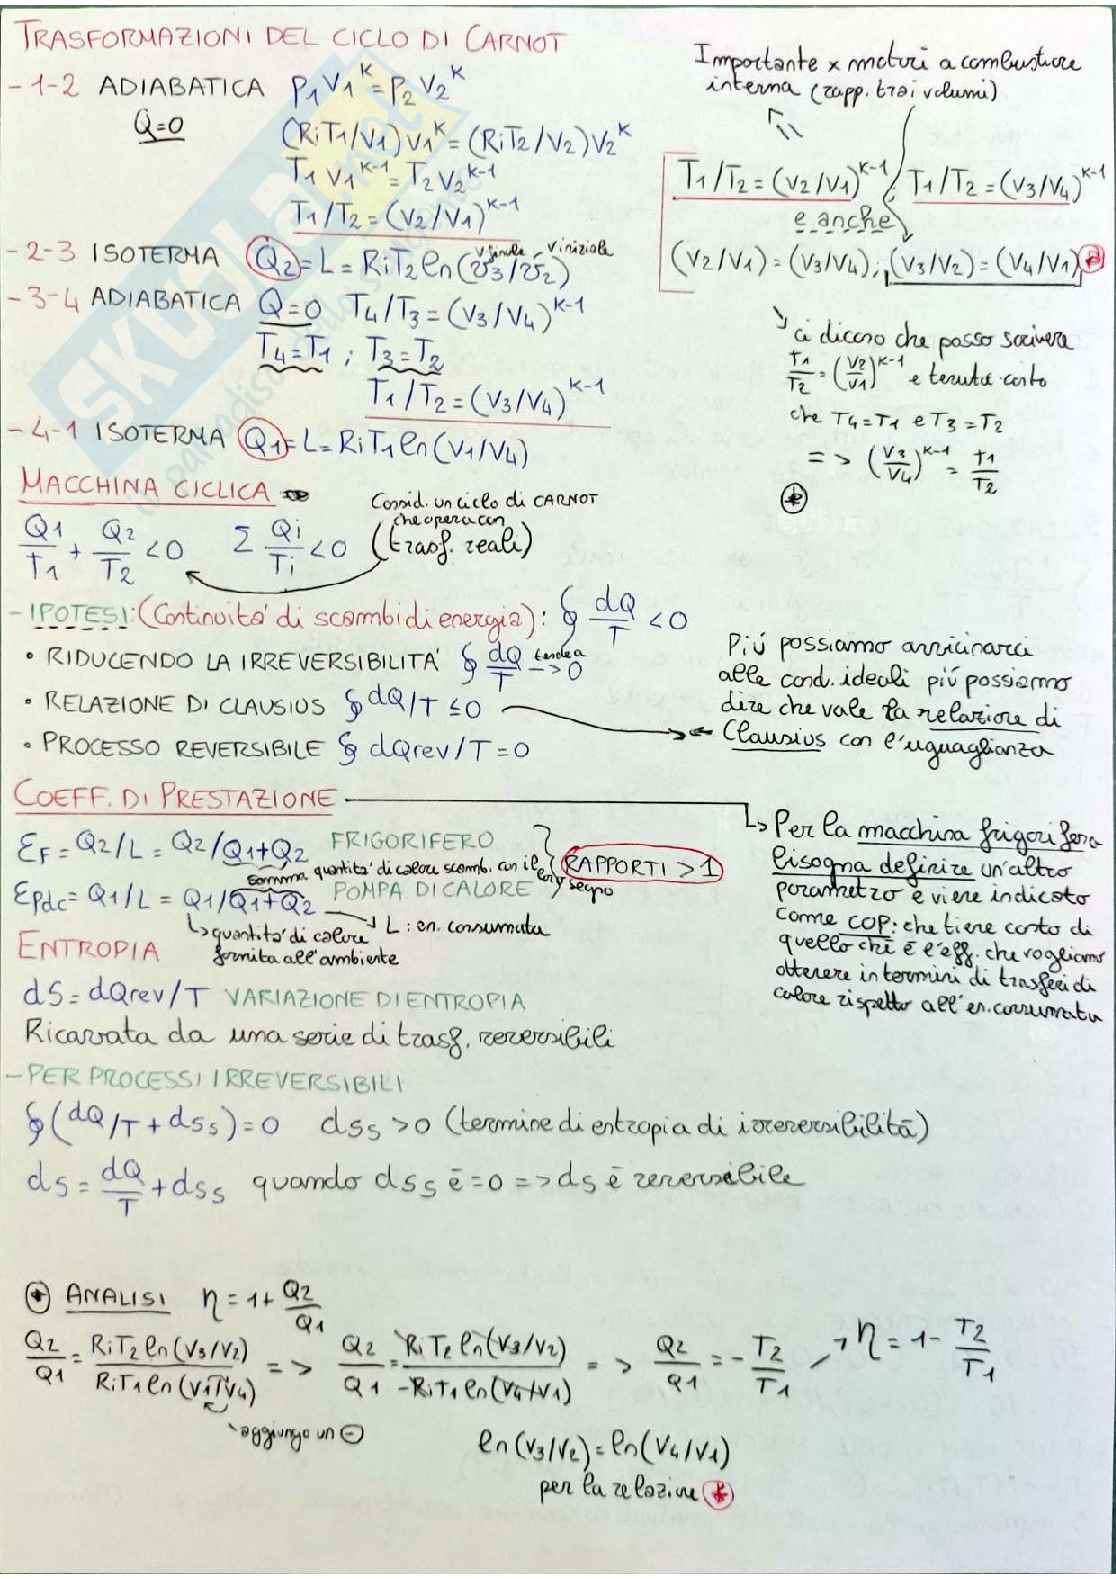 TRASFORMAZIONI DEL CICLO DI CARNOT
- 1-2 ADIABATICA p1V1^K = p2V2^K
Q=0
(RiT1/V1)V1^K = (RiT2/V2)V2^K
T1 V1^K-1 = T2 V2^K-1
T1/T2 = (V2/V1)^K-1
- 2-3 ISOTERMA Q2 = L = RiT2 ln(v3/v2)
v finale v iniziale
- 3-4 ADIABATICA Q=0 T4/T3 = (V3/V4)^K-1
T4=T1 ; T3=T2
T1/T2 = (V3/V4)^K-1
- 4-1 ISOTERMA Q1 = L = RiT1 ln(V1/V4)
Importante x motori a combustione
interna (rapp. tra i volumi)
T1/T2 = (V2/V1)^K-1 ; T1/T2 = (V3/V4)^K-1
e anche
(V2/V1) = (V3/V4) ; (V3/V2) = (V4/V1) *
ci dicono che posso scrivere
T1/T2 = (V2/V1)^K-1 e tenuto conto
che T4=T1 e T3=T2
=> (V3/V4)^K-1 = T1/T2
*
MACCHINA CICLICA
Q1/T1 + Q2/T2 < 0 Σ Qi/Ti < 0
Consid. un ciclo di CARNOT
che opera con
(trasf. reali)
- IPOTESI: (Continuità di scambi di energia): ∮ dQ/T < 0
• RIDUCENDO LA IRREVERSIBILITÀ ∮ dQ/T tende a -> 0
• RELAZIONE DI CLAUSIUS ∮ dQ/T ≤ 0
• PROCESSO REVERSIBILE ∮ dQrev/T = 0
Più possiamo avvicinarci
alle cond. ideali più possiamo
dire che vale la relazione di
Clausius con l'uguaglianza
COEFF. DI PRESTAZIONE
εF = Q2/L = Q2/Q1+Q2 FRIGORIFERO
somma quantità di calore scamb. con il loro segno
RAPPORTI > 1
εpdc = Q1/L = Q1/Q1+Q2 POMPA DI CALORE
quantità di calore
fornita all'ambiente
L : en. consumata
Per la macchina frigorifera
bisogna definire un'altro
parametro e viene indicato
come COP: che tiene conto di
quello che è l'eff. che vogliamo
ottenere in termini di trasferi di
calore rispetto all'en. consumata
ENTROPIA
dS = dQrev/T VARIAZIONE DI ENTROPIA
Ricavata da una serie di trasf. reversibili
- PER PROCESSI IRREVERSIBILI
∮(dQ/T + dSs) = 0 dSs > 0 (termine di entropia di irreversibilità)
dS = dQ/T + dSs quando dSs è = 0 => dS è reversibile
* ANALISI η = 1 + Q2/Q1
Q2/Q1 = RiT2 ln(V3/V2)/RiT1 ln(V1/V4) => Q2/Q1 = RiT2 ln(V3/V2)/-RiT1 ln(V4/V1) => Q2/Q1 = - T2/T1 η = 1 - T2/T1
aggiungo un -
ln(V3/V2) = ln(V4/V1)
per la relazione *